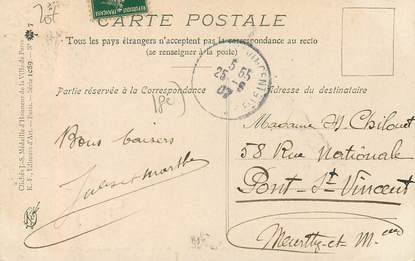 CARTE POSTALE
Tous les pays étrangers n'acceptent pas la correspondance au recto
(se renseigner à la poste)
Partie réservée à la Correspondance
Adresse du destinataire
Bons baisers
Jules et Marthe
Madame
58 Rue Nationale
Pont-St-Vincent
Meurthe-et-M
Clichés J.-S. Médaille d'Honneur de la Ville de Paris
Éditeurs d'Art. - Paris. - Série 1689. - N° 7